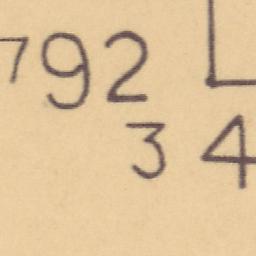 792
3 4